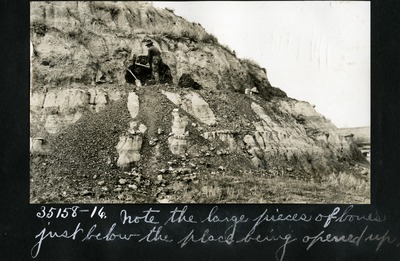 35158-14. Note the large pieces of bones
just below the place being opened up.